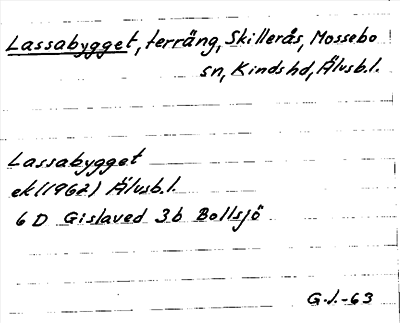 Lassabygget, terräng, Skillerås, Mossebo
sn, Kinds hd, Älvsb.l.
Lassabygget
ek (1962) Älvsb.l.
6 D Gislaved 3b Bollsjö
G.J.-63